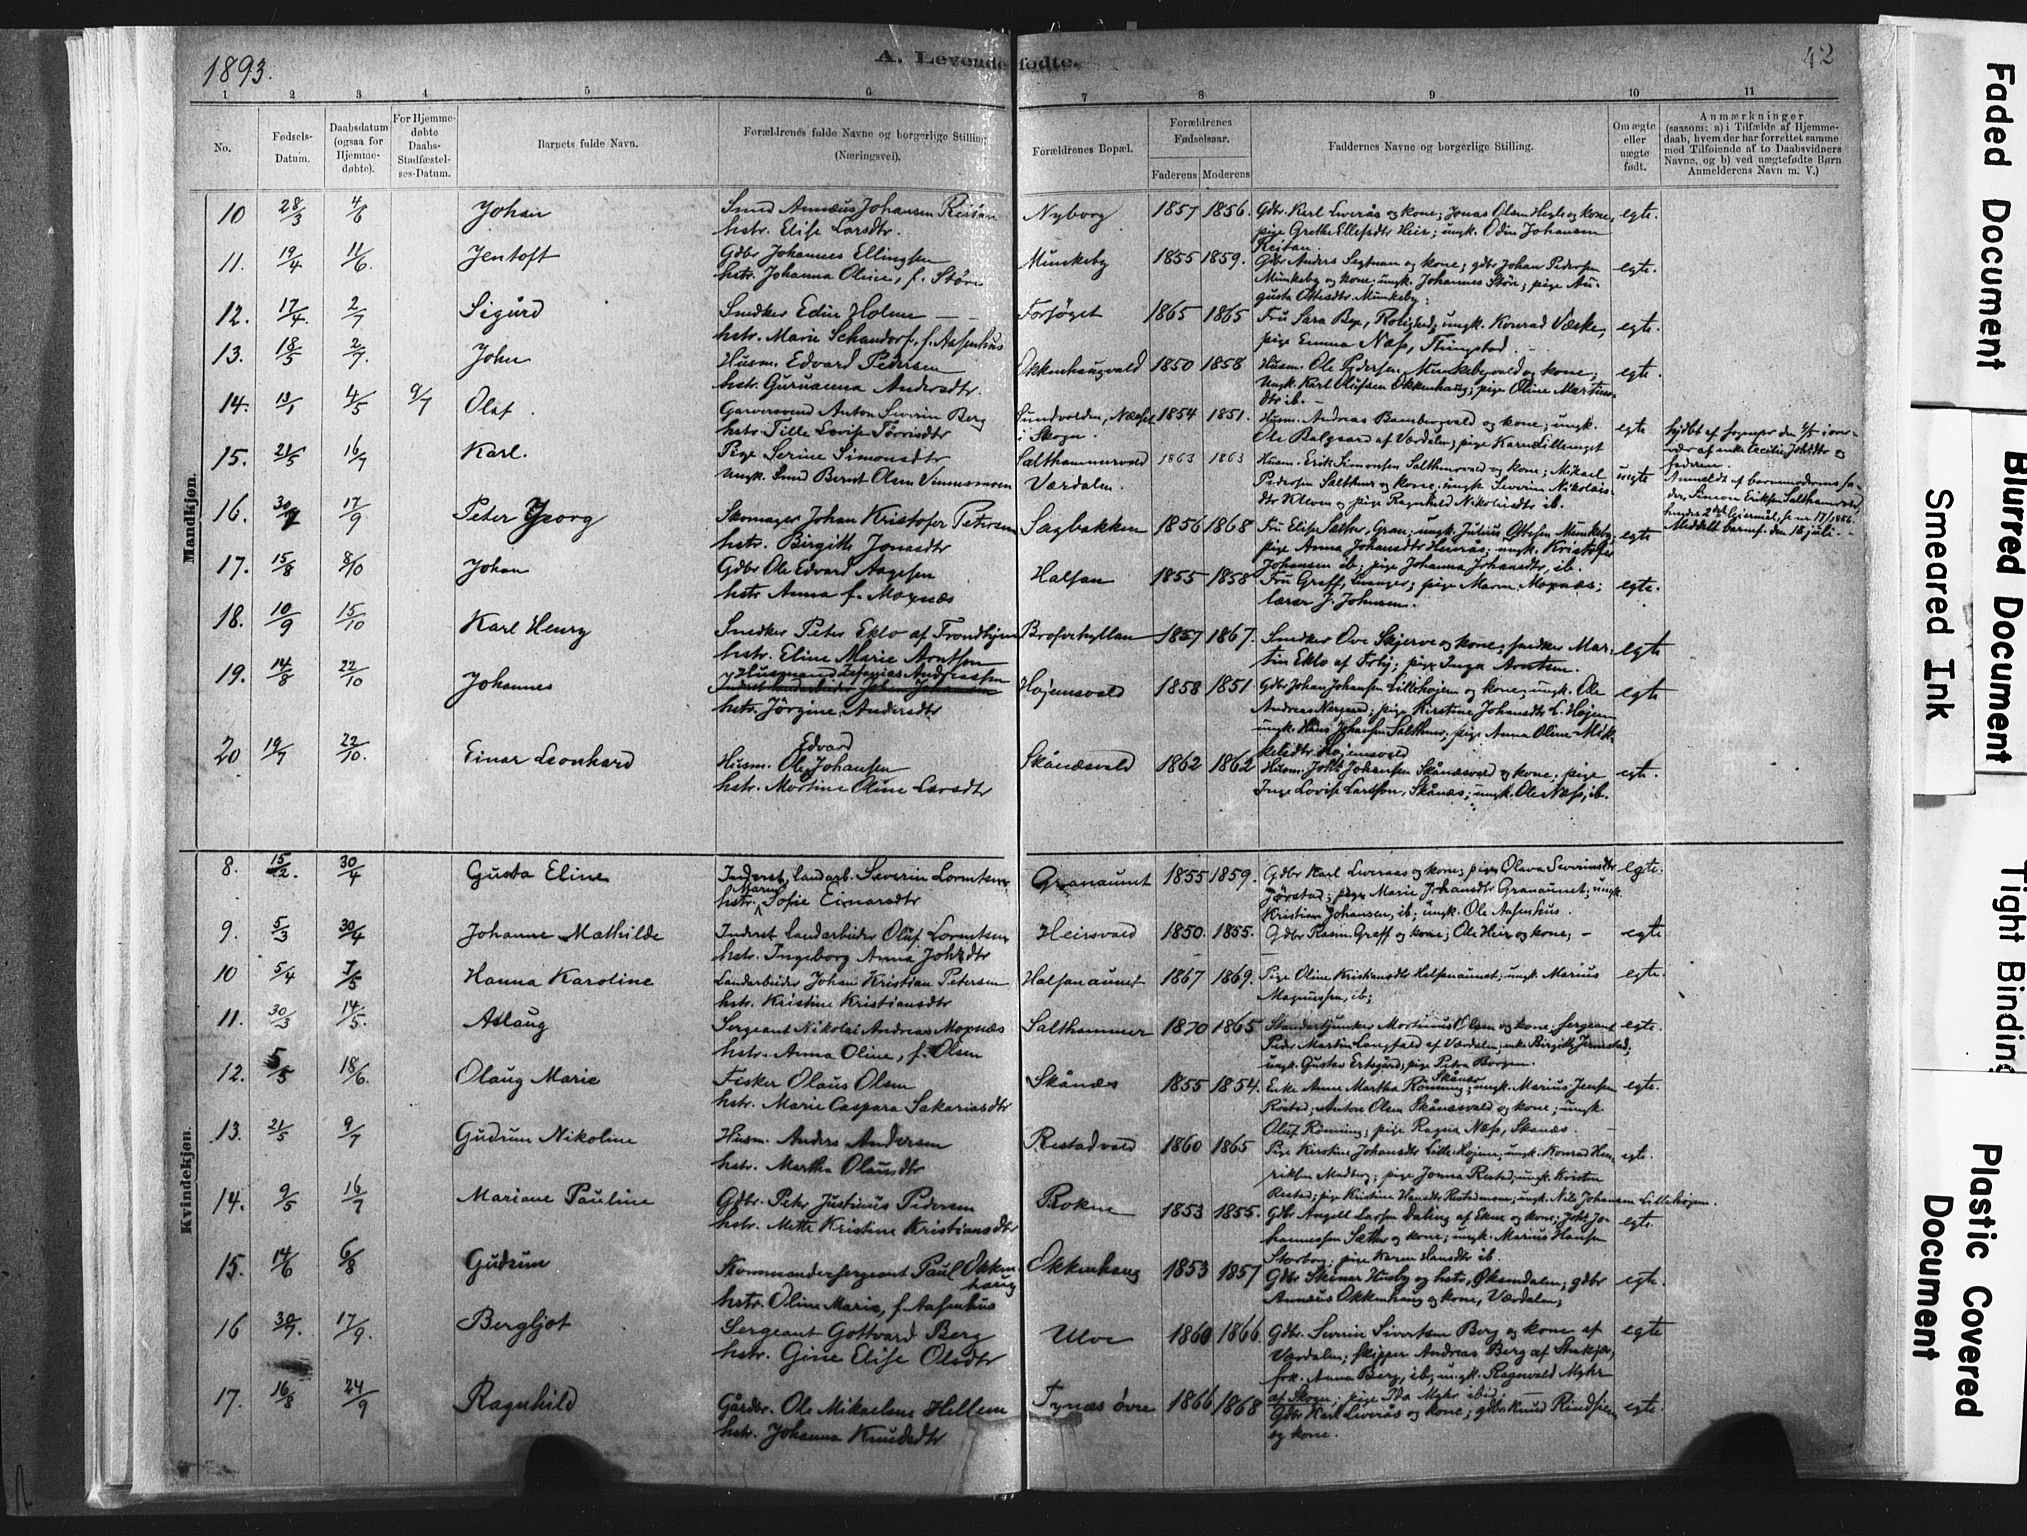 1893.
A. Levende fødte.
42
1 2 3 4 5 6 7 8 9 10 11
No.
Fødsels-Datum.
Daabsdatum (ogsaa for Hjemme-døbte).
For Hjemme-døbte Daabs-Stadfæstel-ses-Datum.
Barnets fulde Navn.
Forældrenes fulde Navne og borgerlige Stilling (Næringsvei).
Forældrenes Bopæl.
Forældrenes Fødselsaar.
Faderens Moderens
Faddernes Navne og borgerlige Stilling.
Om ægte eller uægte født.
Anmærkninger
(saasom: a) i Tilfælde af Hjemme-
daab, hvem der har forrettet samme
med Tilføiende af to Daabsvidners
Navne, og b) ved uægtefødte Børn
Anmelderens Navn m. V.)
Mandkjøn.
10 28/3 4/6 Johan
Smed Annæus Johansen Reitan
hstr. Elise Larsdtr.
Nyborg 1857 1856.
Gdbr. Karl Liverås og kone; Jonas Olsen og kone,
pige Grethe Ellefsdtr Heir; ungk. Odin Johansen
Reitan.
egte.
11. 19/4 11/6. Jentoft
Gdbr Johannes Ellingsen
hstr. Johanna Oline, f. Støre
Munkeby 1855 1859.
Gdbr Anders Segtnan og kone; gdbr Johan Pedersen
Munkeby og kone; ungk. Johannes Støre; pige Au-
gusta Ottesdtr Munkeby.
egte.
12. 17/4. 2/7 Sigurd
Snedker Edin Holmen
hstr. Marie Schandorf, f. Aasenhus
Forsøget 1865 1865
Fru Sara Bye, Rolighed; ungk. Konrad Væske,
pige Emma Næss,
egte.
13. 18/5 2/7. John
Husm. Edvard Pedersen
hstr. Guruanna Andersdtr.
Okkenhaugvald 1850 1858
Husm. Ole Pedersen Munkebyvald og kone;
ungk. Karl Olufsen Okkenhaug; pige Oline Martins-
dtr ib.
egte.
14. 13/1 4/5 9/7 Olaf.
Garversvend Anton Severin Berg
hstr. Tille Lovise Tørrisdtr
Sundvolden, Næsset
i Skogn. 1854 1851.
Husm. Andreas Rambergvald og kone; ungk.
Ole Balgaard af Værdalen; pige Karen Lillenget
egte
15. 21/5 16/7 Karl.
Pige Serine Simonsdtr
ungk. Smed Bernt Olsen Vinnesmoen
Salthammervald
Værdalen. 1863 1863
Husm. Erik Simonsen Salthmrvald og kone; Mikael
Pedersen Salthmr og kone; ungk. Severin Nikolais-
dtr Kleven og pige Ragnhild Nikolaisdtr ib.
uegte
Anmeldt af barnemoderens fa-
der, Simon Eriksen Salthammervald,
16. 30/7 17/9 Peter Georg
Skomager Johan Kristofer Petersen
hstr. Birgitte Jonasdtr
Sagbakken 1856 1868
Fru Elise Sæther, Gran; ungk. Julius Ottesen Munkeby;
pige Anna Johansdtr Hernæs; ungk. Kristofer
Johansen ib; pige Johanna Johansdtr, ib.
egte
17. 15/8 8/10 Johan
Gdbr Ole Edvard Aagesen
hstr Anna f. Moxnæs
Halsan 1855 1858
Fru Greff, Levanger; pige Maren Moxnæs;
lærer J. Johnsen.
egte.
18. 10/9 15/10 Karl Henry
Snedker Peter Eklo af Trondhjem
hstr. Eline Marie Arntsen
Brofvehyllan 1857 1867.
Snedker Ove Skjerve og kone; snedker Mar-
tin Eklo af Trhj; pige Inga Arntsen.
egte
19. 14/8 22/10 Johannes
Husmand Zefanias Andreassen
hstr. Jørgine Andersdtr
Højemsvald 1858 1851
Gdbr Johan Johansen Lillehøjem og kone; ungk. Ole
Andreas Nergaard; pige Kirstine Johansdtr L. Højem
ungk. Hans Johansen Salthmr; pige Anna Oline Mik-
kelsdtr Højemsvald
egte
20 19/7 22/10. Einar Leonhard
Edvard
Husm. Ole Johansen
hstr. Martine Oline Larsdtr
Skånæsvald 1862 1862
Husm. Johs Johansen Skånæsvald og kone; pige
Inge Lovise Larssen, Skånæs; ungk. Ole Næss, ib.
egte.
Kvindekjøn.
8. 15/2. 30/4 Gusta Eline
Inderst, landarb. Severin Lorentsen
Marie
hstr. Sofie Einarsdtr
Granaunet 1855 1859.
Gdbr Karl Liveraas og kone; pige Olava Severinsdtr
Jørstad; pige Marie Johansdtr Granaunet; ungk.
Kristian Johansen, ib; ungk. Ole Aasenhus.
egte.
9. 5/3 30/4 Johanne Mathilde
Inderst. Landarbeider Oluf Lorentsen
hstr. Ingeborg Anna Johsdtr
Heirsvald 1850. 1855.
Gdbr Rasm. Greff og kone; Ole Heir og kone;
egte
10 5/4 7/5 Hanna Karoline
Landarbeider Johan Kristian Petersen
hstr. Kristine Kristiansdtr
Halsanaunet 1867 1869.
Pige Oline Kristiansdtr Halsanaunet; ungk. Marius
Magnussen, ib;
egte.
11. 30/3 14/5. Aslaug
Sergeant Nikolai Andreas Moxnæs
hstr. Anna Oline, f. Olsen
Salthammer 1870 1865
Standartjunker Mortinus Olsen og kone; sergeant
Peder Martin Langfald af Værdalen; enke Birgitte Jermstad;
ungk. Gustav Ertsgård; pige Petra Borgen.
egte.
12. 5/5 18/6. Olaug Marie
Fisker Olaus Olsen
hstr. Marie Caspara Sakariasdtr
Skånæs 1855 1854.
Skånæs
Enke Anne Martha Rønning; ungk. Marius Jensen
Røstad; Anton Olsen Skånæsvald og kone; ungk.
Oluf Rønning; pige Ragna Næss, Skånæs.
egte.
13. 21/5 9/7 Gudrun Nikoline
Husm. Anders Andersen
hstr. Martha Olausdtr
Restadvald 1860 1865
Pige Kirstine Johansdtr Lille Højem; ungk. Konrad Hen-
riksen Madberg; pige Jonna Restad; ungk. Kristen
Restad; pige Kristine Hansdtr Restadmoen; ungk. Nils Johansen Lillehøjem.
egte.
14. 9/5 16/7 Mariane Pauline
Gdbr. Peter Justinus Pedersen
hstr. Mette Kristine Kristiansdtr
Rokne 1853 1855.
Gdbr Angell Larsen Daling af Ekne og kone; Johs Jo-
hannessen Sæther og kone; ungk. Marius Hansen
Storborg; pige Karen Hansdtr ib.
egte.
15. 14/6 6/8 Gudrun
Kommandersergeant Paul Okken-
haug
hstr. Oline Marie, f. Aasenhus
Okkenhaug 1853 1857
Gdbr Skimer Husby og hstr, Øksendalen; gdbr
Annæus Okkenhaug og kone, Værdalen;
egte.
16 30/7. 17/9. Bergljot
Sergeant Gottvard Berg
hstr. Gine Elise Olsdtr
Ulve 1860 1866
Gdbr. Severin Sivertsen Berg og kone af
Værdalen; skipper Andreas Berg af Stenkjær,
frk. Anna Berg, ib; ungk. Ragnvald Myhr
af Skogn; pige Ida Myhr ibid;
egte
17. 16/8 24/9 Ragnhild
Gårdbr. Ole Mikaelsen Hellem
hstr. Johanna Knudsdtr
Tynæs øvre 1866 1868
Gdbr Karl Liverås og kone; gdbr Knud Rindsem
og kone.
egte.
Faded Document
Blurred Document
Smeared Ink
Tight Binding
Plastic Covered
Document